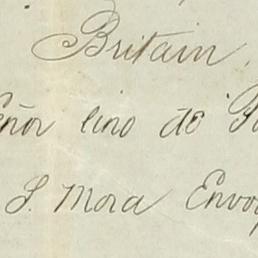 Britain
eñor lino de P
S. Mora Envoy